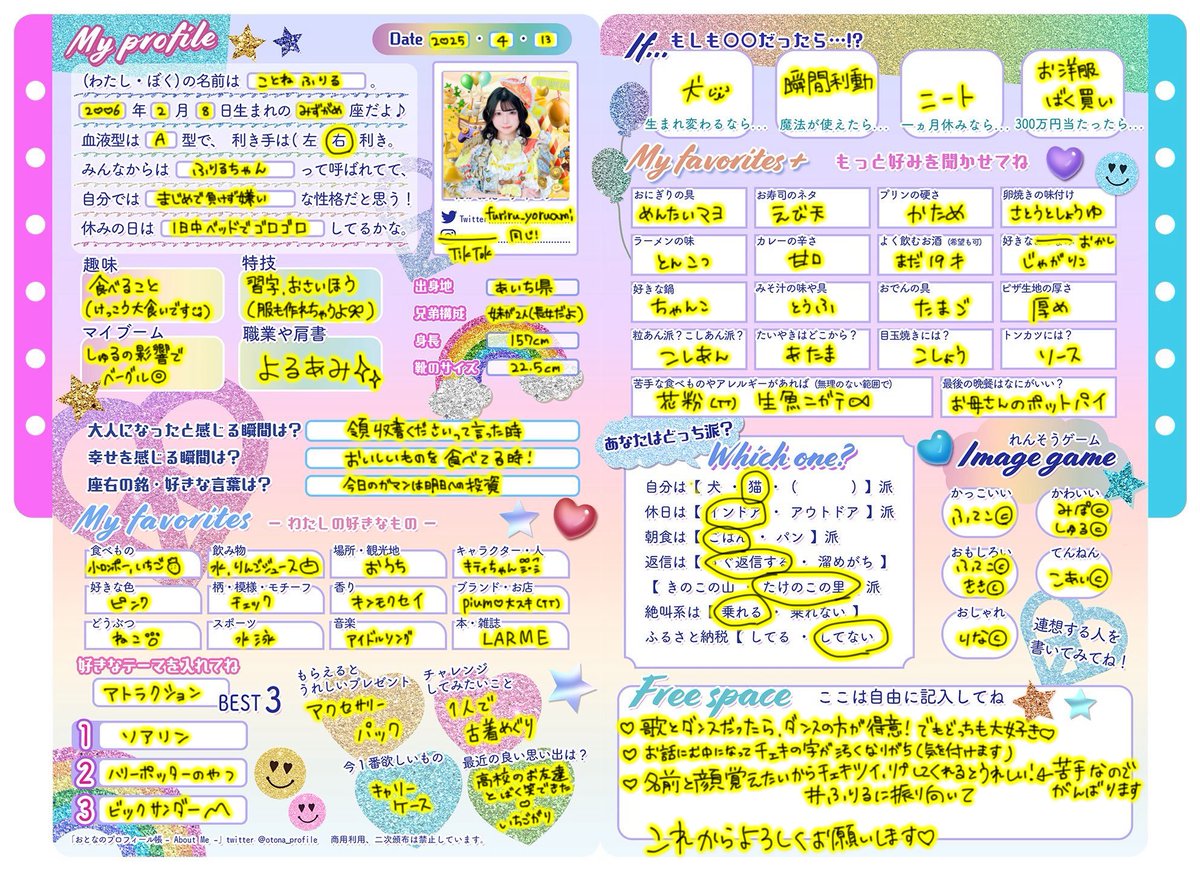 My profile
Date 2025・4・13
(わたし・ぼく)の名前は ことね ふりる 。
2006 年 2 月 8 日生まれの みずがめ 座だよ♪
血液型は A 型で、利き手は(左 右)利き。
みんなからは ふりるちゃん って呼ばれてて、
自分では まじめで負けず嫌い な性格だと思う!
休みの日は 1日中ベッドでゴロゴロ してるかな。
Twitter furiru_yoruami
同じ!
TikTok
趣味
食べること
(けっこう大食いです)
特技
習字、おさいほう
(服も作れちゃうよ)
マイブーム
しゅるの影響で
ベーグル◎
職業や肩書
よるあみ
出身地 あいち県
兄弟構成 妹が2人(長女だよ)
身長 157cm
靴のサイズ 22.5cm
大人になったと感じる瞬間は? 領収書くださいって言った時
幸せを感じる瞬間は? おいしいものを食べてる時!
座右の銘・好きな言葉は? 今日のガマンは明日への投資
My favorites ーわたしの好きなものー
食べもの
小ロンポー、いちご
飲み物
水、りんごジュース
場所・観光地
おうち
キャラクター・人
キティちゃん
好きな色
ピンク
柄・模様・モチーフ
チェック
香り
キンモクセイ
ブランド・お店
pium♡大スキ(TT)
どうぶつ
ねこ
スポーツ
水泳
音楽
アイドルソング
本・雑誌
LARME
好きなテーマを入れてね
アトラクション BEST 3
1 ソアリン
2 ハリーポッターのやつ
3 ビックサンダー
もらえると
うれしいプレゼント
アクセサリー
パック
チャレンジ
してみたいこと
1人で
古着めぐり
今1番欲しいもの
キャリー
ケース
最近の良い思い出は?
高校のお友達
とばく笑できた♡
いちごがり
「おとなのプロフィール帳 - About Me -」twitter @otona_profile 商用利用、二次頒布は禁止しています。
If... もしも〇〇だったら…!?
犬
生まれ変わるなら…
瞬間利動
魔法が使えたら…
ニート
一ヵ月休みなら…
お洋服
ばく買い
300万円当たったら…
My favorites+ もっと好みを聞かせてね
おにぎりの具
めんたいマヨ
お寿司のネタ
えび天
プリンの硬さ
かため
卵焼きの味付け
さとうとしょうゆ
ラーメンの味
とんこつ
カレーの辛さ
甘口
よく飲むお酒(希望も可)
まだ19才
好きな おかし
じゃがりこ
好きな鍋
ちゃんこ
みそ汁の味や具
とうふ
おでんの具
たまご
ピザ生地の厚さ
厚め
粒あん派?こしあん派?
こしあん
たいやきはどこから?
あたま
目玉焼きには?
こしょう
トンカツには?
ソース
苦手な食べものやアレルギーがあれば(無理のない範囲で)
花粉(TT) 生魚ニガテ
最後の晩餐はなにがいい?
お母さんのポットパイ
あなたはどっち派?
Which one?
自分は【 犬 ・ 猫 ・( )】派
休日は【 インドア ・ アウトドア 】派
朝食は【 ごはん ・ パン 】派
返信は【 すぐ返信する ・ 溜めがち 】
【 きのこの山 ・ たけのこの里 派
絶叫系は【 乗れる ・ 乗れない 】
ふるさと納税【 してる ・ してない
れんそうゲーム
Image game
かっこいい
ふってこ©
かわいい
みぽ©
しゅる©
おもしろい
ふってこ©
てんねん
こあい©
おしゃれ
りな©
連想する人を
書いてみてね!
Free space ここは自由に記入してね
♡歌とダンスだったら、ダンスの方が得意!でもどっちも大好き♡
♡お話にむ中になってチェキの字が汚くなりがち(気を付けます)
♡名前と顔覚えたいからチェキツイ、リプしてくれるとうれしい!←苦手なので
がんばります
#ふりるに振り向いて
これからよろしくお願いします♡